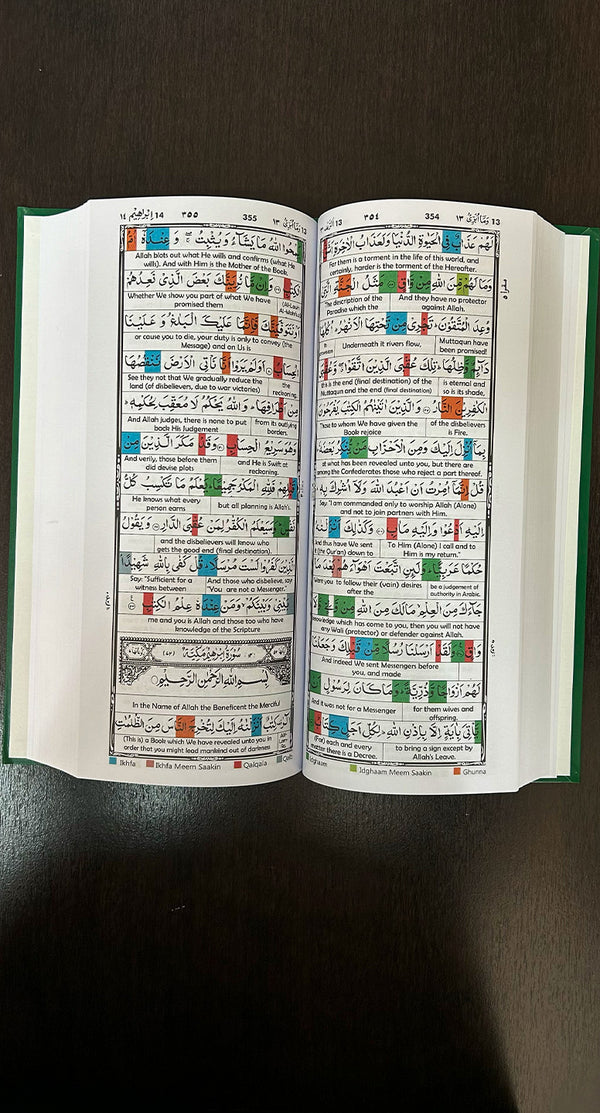 13 وَمَا أُبَرِّئُ ١٣ 354 ٣٥٤ 13
لَهُمْ عَذَابٌ فِي الْحَيٰوةِ الدُّنْيَا وَلَعَذَابُ الْاٰخِرَةِ
For them is a torment in the life of this world, and certainly, harder is the torment of the Hereafter.
وَمَا لَهُمْ مِّنَ اللّٰهِ مِنْ وَّاقٍ مَثَلُ الْجَنَّةِ الَّتِيْ
And they have no protector against Allah. The description of the Paradise which the
وُعِدَ الْمُتَّقُوْنَ تَجْرِيْ مِنْ تَحْتِهَا الْاَنْهٰرُ اُكُلُهَا
Muttaqun have been promised! Underneath it rivers flow,
دَآئِمٌ وَّظِلُّهَا تِلْكَ عُقْبَى الَّذِيْنَ اتَّقَوْا وَّعُقْبَى
is eternal and so is its shade, this is the end (final destination) of the Muttaqun and the end (final destination)
الْكٰفِرِيْنَ النَّارُ وَالَّذِيْنَ اٰتَيْنٰهُمُ الْكِتٰبَ يَفْرَحُوْنَ
of the disbelievers is Fire. Those to whom We have given the Book rejoice
بِمَآ اُنْزِلَ اِلَيْكَ وَمِنَ الْاَحْزَابِ مَنْ يُّنْكِرُ بَعْضَهٗ
at what has been revealed unto you, but there are among the Confederates those who reject a part thereof.
قُلْ اِنَّمَآ اُمِرْتُ اَنْ اَعْبُدَ اللّٰهَ وَلَآ اُشْرِكَ بِهٖ
Say: "I am commanded only to worship Allah (Alone) and not to join partners with Him.
اِلَيْهِ اَدْعُوْا وَاِلَيْهِ مَاٰبِ وَكَذٰلِكَ اَنْزَلْنٰهُ
To Him (Alone) I call and to Him is my return." And thus have We sent it (the Qur'an) down to
حُكْمًا عَرَبِيًّا وَلَئِنِ اتَّبَعْتَ اَهْوَآءَهُمْ بَعْدَ مَا
be a judgement of authority in Arabic. Were you to follow their (vain) desires after the
جَآءَكَ مِنَ الْعِلْمِ مَا لَكَ مِنَ اللّٰهِ مِنْ وَّلِيٍّ وَّلَا
knowledge which has come to you, then you will not have any Wali (protector) or defender against Allah.
وَاقٍ وَلَقَدْ اَرْسَلْنَا رُسُلًا مِّنْ قَبْلِكَ وَجَعَلْنَا
And indeed We sent Messengers before you, and made
لَهُمْ اَزْوَاجًا وَّذُرِّيَّةً وَمَا كَانَ لِرَسُوْلٍ اَنْ
for them wives and offspring. And it was not for a Messenger
يَّاْتِيَ بِاٰيَةٍ اِلَّا بِاِذْنِ اللّٰهِ لِكُلِّ اَجَلٍ كِتَابٌ
to bring a sign except by Allah's Leave. (For) each and every matter there is a Decree.
Idghaam Idghaam Meem Saakin Ghunna
13 وَمَا أُبَرِّئُ ١٣ 355 ٣٥٥ 14 اِبْرٰهِيْم ١٤
يَمْحُوا اللّٰهُ مَا يَشَآءُ وَيُثْبِتُ وَعِنْدَهٗٓ اُمُّ
Allah blots out what He wills and confirms (what He wills). And with Him is the Mother of the Book,
الْكِتٰبِ وَاِنْ مَّا نُرِيَنَّكَ بَعْضَ الَّذِيْ نَعِدُهُمْ
(Al-Lauh Al-Mahfuz) Whether We show you part of what We have promised them
اَوْ نَتَوَفَّيَنَّكَ فَاِنَّمَا عَلَيْكَ الْبَلٰغُ وَعَلَيْنَا
or cause you to die, your duty is only to convey (the Message) and on Us is
الْحِسَابُ اَوَلَمْ يَرَوْا اَنَّا نَاْتِي الْاَرْضَ نَنْقُصُهَا
the reckoning. See they not that We gradually reduce the land (of disbelievers, due to war victories)
مِنْ اَطْرَافِهَا وَاللّٰهُ يَحْكُمُ لَا مُعَقِّبَ لِحُكْمِهٖ
from its outlying borders. And Allah judges, there is none to put back His Judgement
وَهُوَ سَرِيْعُ الْحِسَابِ وَقَدْ مَكَرَ الَّذِيْنَ مِنْ
and He is Swift at reckoning. And verily, those before them did devise plots
قَبْلِهِمْ فَلِلّٰهِ الْمَكْرُ جَمِيْعًا يَعْلَمُ مَا تَكْسِبُ كُلُّ
but all planning is Allah's. He knows what every person earns
نَفْسٍ وَسَيَعْلَمُ الْكُفّٰرُ لِمَنْ عُقْبَى الدَّارِ وَيَقُوْلُ
and the disbelievers will know who gets the good end (final destination).
الَّذِيْنَ كَفَرُوْا لَسْتَ مُرْسَلًا قُلْ كَفٰى بِاللّٰهِ شَهِيْدًا
And those who disbelieve, say: "You are not a Messenger." Say: "Sufficient for a witness between
بَيْنِيْ وَبَيْنَكُمْ وَمَنْ عِنْدَهٗ عِلْمُ الْكِتٰبِ
me and you is Allah and those too who have knowledge of the Scripture
سُوْرَةُ اِبْرٰهِيْمَ مَكِّيَّةٌ
بِسْمِ اللّٰهِ الرَّحْمٰنِ الرَّحِيْمِ
In the Name of Allah the Beneficent the Merciful
الٓرٰ كِتٰبٌ اَنْزَلْنٰهُ اِلَيْكَ لِتُخْرِجَ النَّاسَ مِنَ الظُّلُمٰتِ
(This is) a Book which We have revealed unto you in order that you might lead mankind out of darkness
Ikhfa Ikhfa Meem Saakin Qalqala